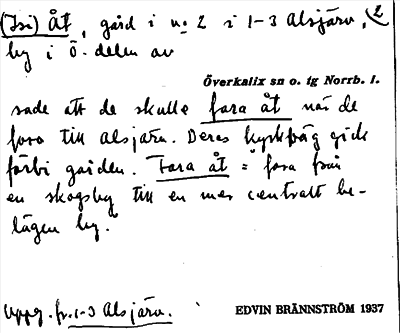 (Isi) Åt, gård i no 2 i 1-3 Alsjärv, 2
by i ö. delen av
Överkalix sn o. tg Norrb. l.
sade att de skulle fara åt när de
foro till Alsjärv. Deras kyrkväg gick
förbi gården. Fara åt = fara från
en skogsby till en mer centralt be-
lägen by.
Uppg. fr. 1-3 Alsjärv.
EDVIN BRÄNNSTRÖM 1937